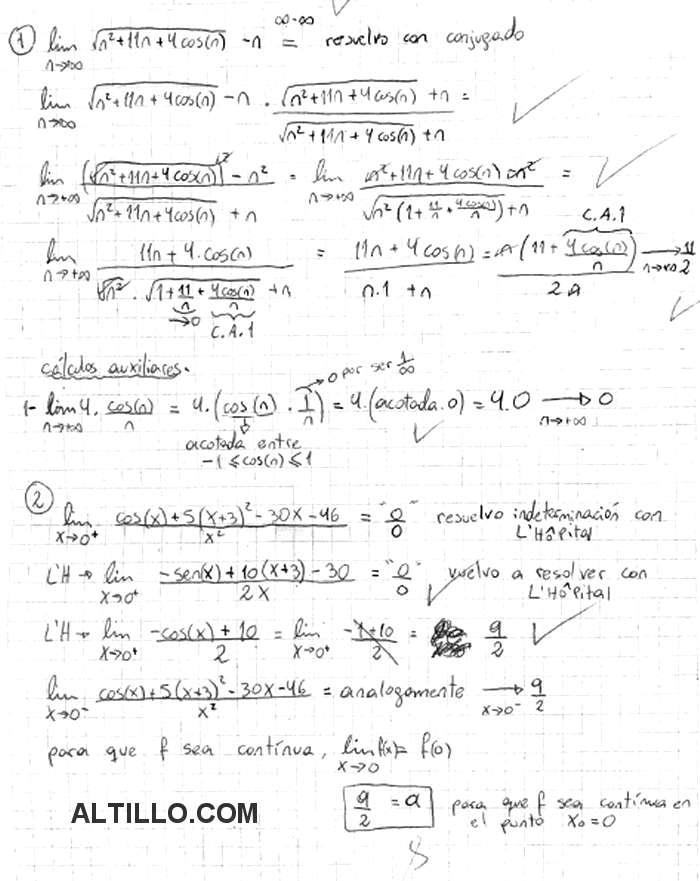 ∞-∞
① lim n→+∞ √(n²+11n+4cos(n)) -n = resuelvo con conjugado
lim n→∞ √(n²+11n+4cos(n)) -n . (√(n²+11n+4cos(n)) +n)/(√(n²+11n+4cos(n)) +n) =
lim n→+∞ ((√(n²+11n+4cos(n)))² - n²)/(√(n²+11n+4cos(n)) + n) = lim n→+∞ (n²+11n+4cos(n) - n²)/(√(n²(1+11/n+4cos(n)/n)) +n) =
lim n→+∞ (11n + 4.cos(n))/(√n² . √(1+11/n+4cos(n)/n) +n) = (11n + 4cos(n))/(n.1 + n) = n(11+4cos(n)/n)/(2n) → n→+∞ 11/2
C.A.1
→0
C.A.1
cálculos auxiliares.
1- lim n→+∞ 4. cos(n)/n = 4.(cos(n) . 1/n) = 4.(acotada.0) = 4.0 → n→+∞ 0
→0 por ser 1/∞
acotada entre
-1 ≤ cos(n) ≤ 1
② lim x→0⁺ (cos(x)+5(x+3)²-30x-46)/x² = "0/0" resuelvo indeterminación con
L'Hôpital
L'H → lim x→0⁺ (-sen(x)+10(x+3)-30)/2x = "0/0" vuelvo a resolver con
L'Hôpital
L'H → lim x→0⁺ (-cos(x)+10)/2 = lim x→0⁺ (-1+10)/2 = 9/2
lim x→0⁻ (cos(x)+5(x+3)²-30x-46)/x² = analogamente → x→0⁻ 9/2
para que f sea contínua, lim x→0 f(x)= f(0)
9/2 = a para que f sea contínua en
el punto x₀=0
ALTILLO.COM